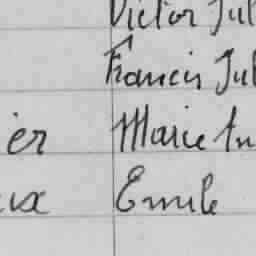 Victor Jul
Francis Jul
ier Marie An
ux Emile